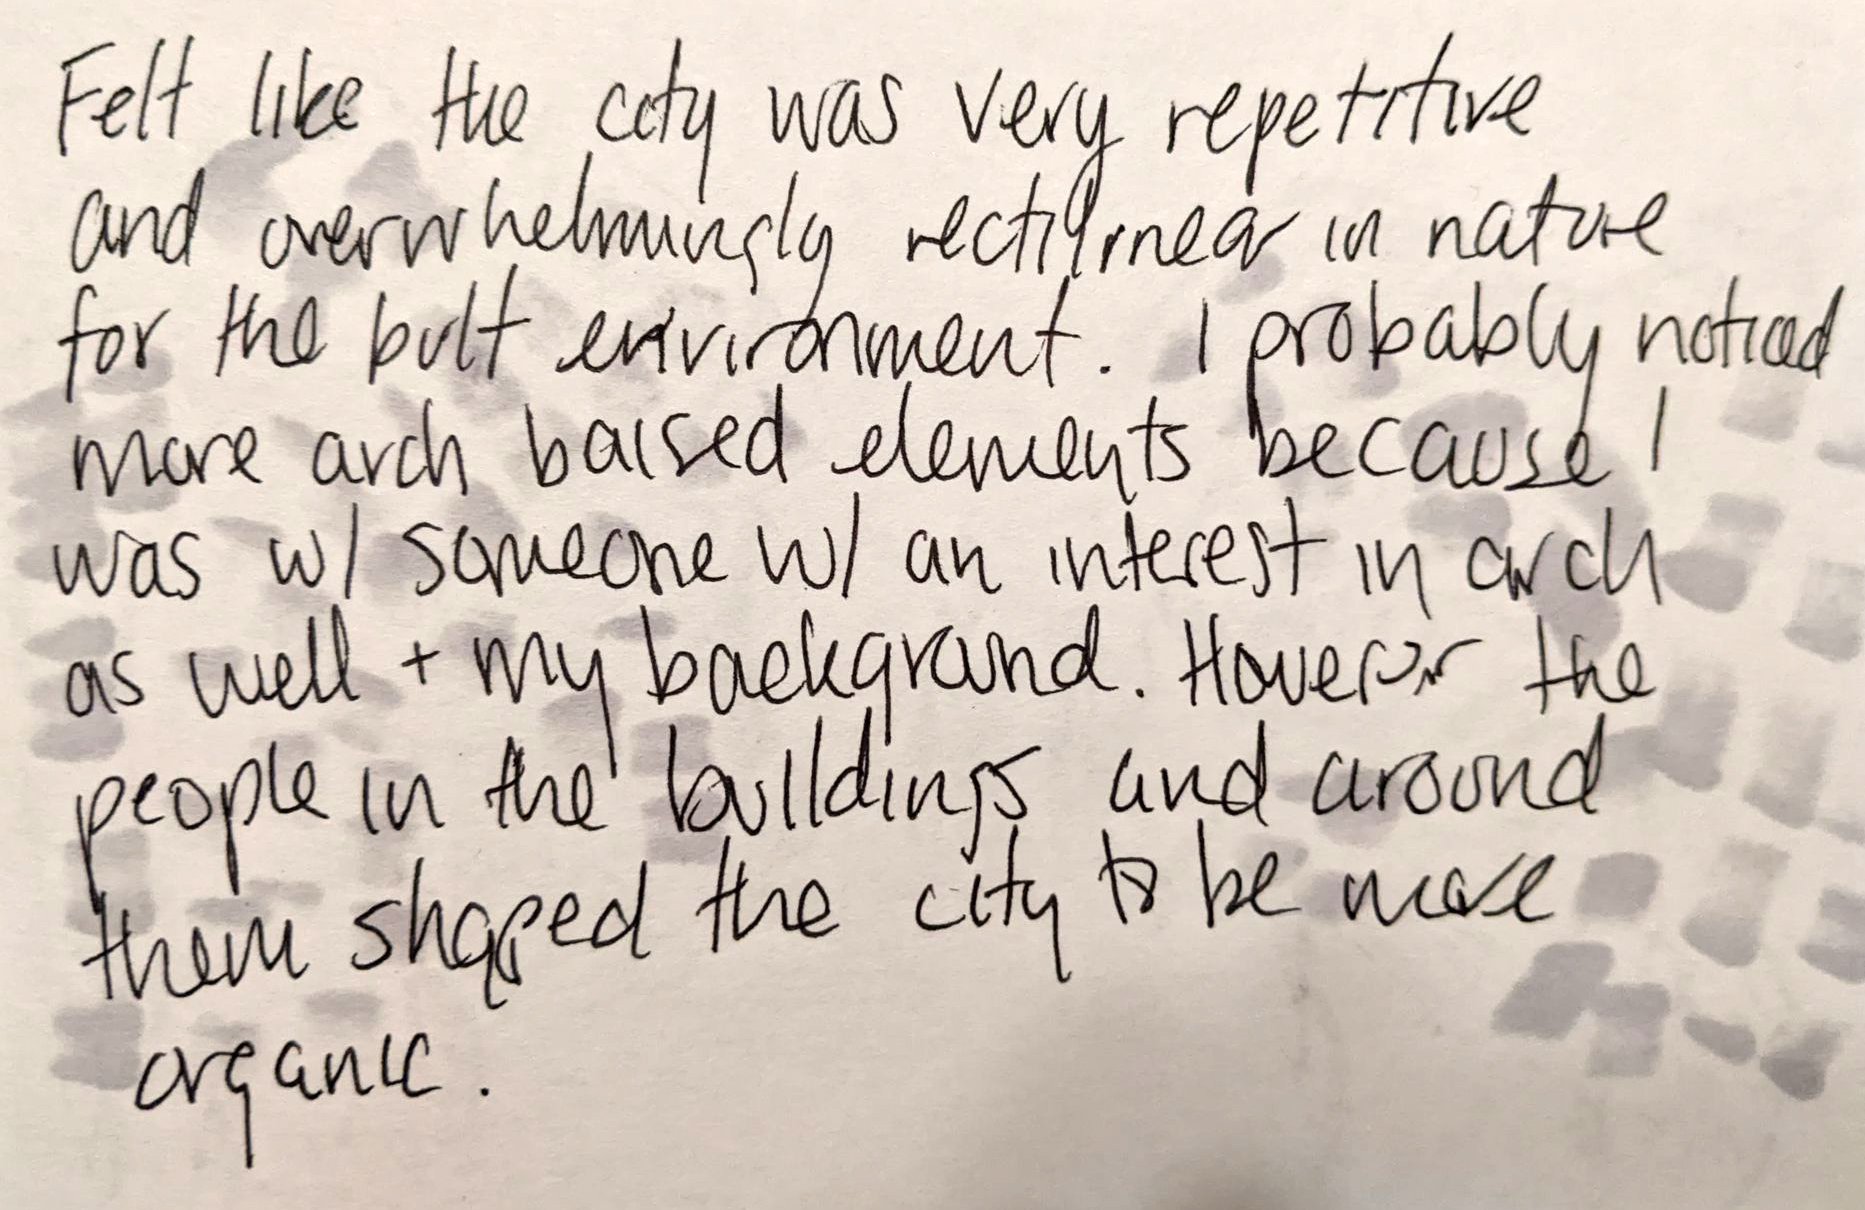 Felt like the city was very repetitive
and overwhelmingly rectilinear in nature
for the bult environment. I probably noticed
more arch baised elements because I
was w/ someone w/ an interest in arch
as well + my background. However the
people in the buildings and around
them shaped the city to be more
organic.